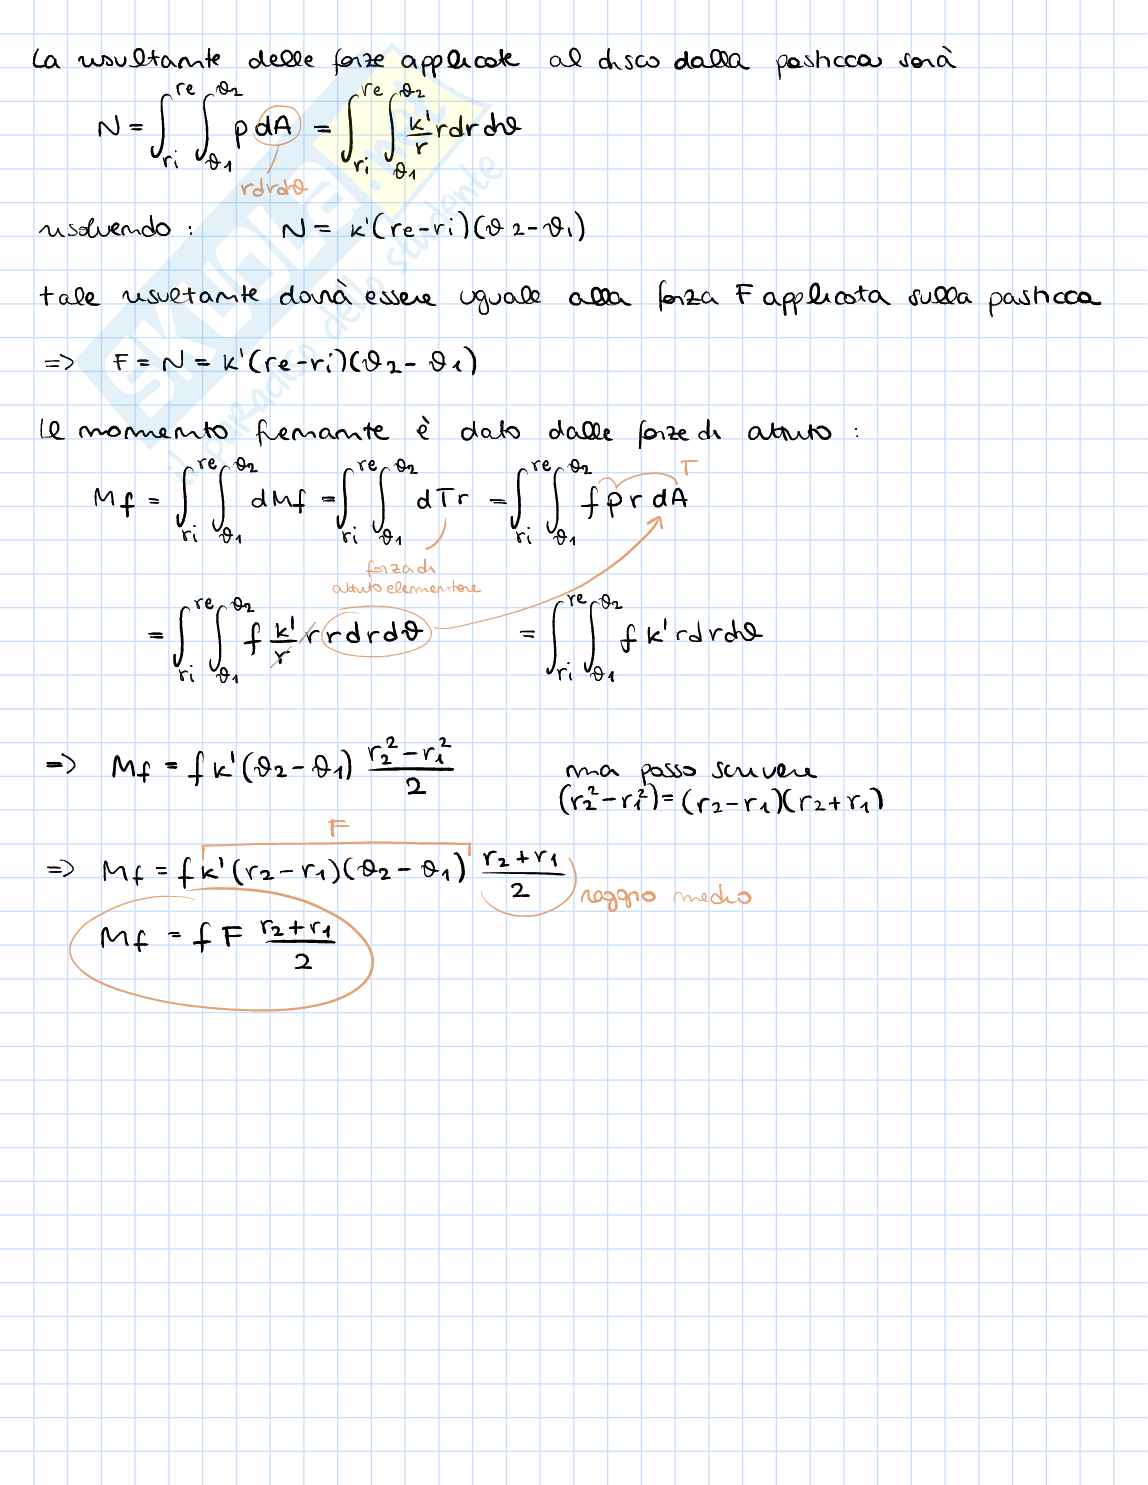 La risultante delle forze applicate al disco dalla pasticca sarà
N = ∫_{ri}^{re} ∫_{θ1}^{θ2} p dA = ∫_{ri}^{re} ∫_{θ1}^{θ2} k'/r r dr dθ
rdrdθ
risolvendo : N = k'(re-ri)(θ2-θ1)
tale risultante dovrà essere uguale alla forza F applicata sulla pasticca
=> F = N = k'(re-ri)(θ2-θ1)
Il momento frenante è dato dalle forze di attrito :
T
Mf = ∫_{ri}^{re} ∫_{θ1}^{θ2} dMf = ∫_{ri}^{re} ∫_{θ1}^{θ2} dTr = ∫_{ri}^{re} ∫_{θ1}^{θ2} f p r dA
forza di
attrito elementare
= ∫_{ri}^{re} ∫_{θ1}^{θ2} f k'/r r r dr dθ = ∫_{ri}^{re} ∫_{θ1}^{θ2} f k' r dr dθ
=> Mf = f k'(θ2-θ1) (r2²-r1²)/2
ma posso scrivere
(r2²-r1²)=(r2-r1)(r2+r1)
F
=> Mf = f k'(r2-r1)(θ2-θ1) (r2+r1)/2
raggio medio
Mf = f F (r2+r1)/2
SKUOLA.net
il paradiso dello studente